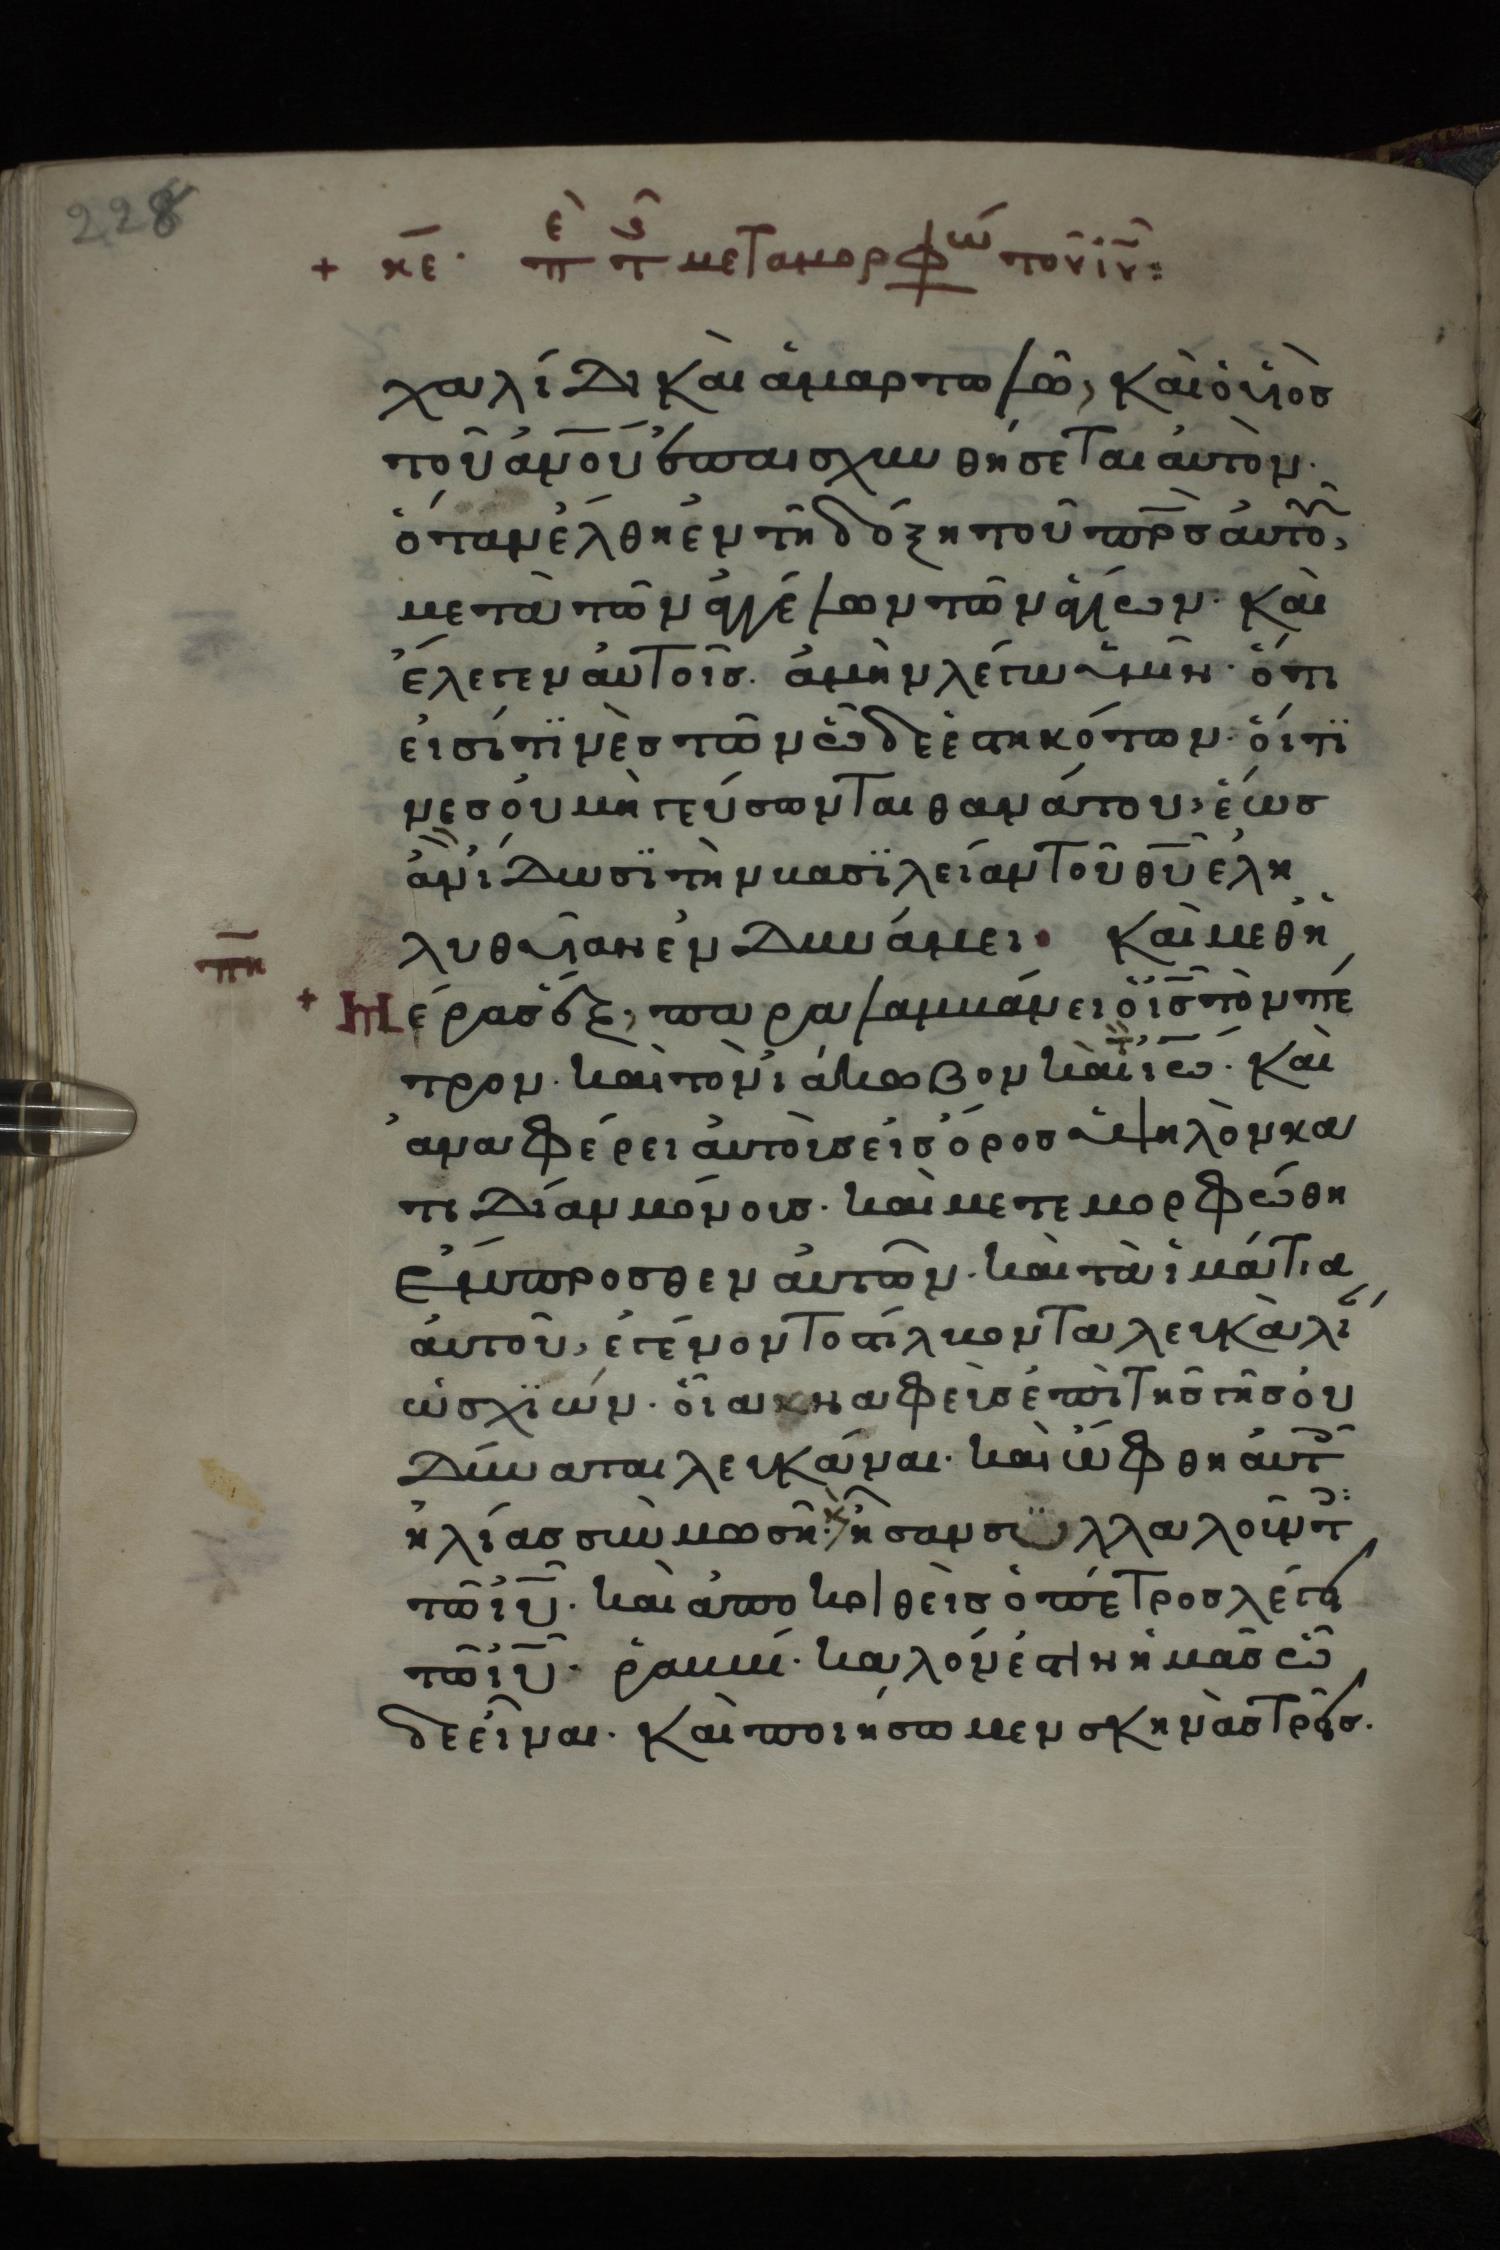 228
+ κε· πε τ μεταμορφω του ιυ:
χαλίδι καὶ ἁμαρτωλῶ, καὶ ὁ υἱὸσ
τοῦ ἀνου ἐπαισχυνθήσεται αὐτὸν·
ὅταν ἔλθη ἐν τῆ δόξη τοῦ πρσ αὐτοῦ,
μετὰ τῶν ἀγγέλων τῶν ἁγίων· καὶ
ἔλεγεν αὐτοῖσ. ἀμὴν λέγω ὑμῖν· ὅτι
εἰσί τϊνὲσ τῶν ὧδε ἑστηκότων· οἵτϊ
νεσ οὐ μὴ γεύσωνται θανάτου, ἕωσ
ἂν ἴδωσϊ τὴν βασϊλείαν τοῦ θυ ἐλη
λυθυῖαν ἐν δυνάμει· καὶ μεθ ἡ
πη
+ Μέρασ ἓξ, παραλαμβάνει ὁ ισ τὸν πέ
τρον· καὶ τὸν ἰάκωβον καὶ τ ιω· καὶ
ἀναφέρει αὐτοὺσ εἰσ ὄροσ ὑψηλὸν κα
τιδίαν μόνουσ· καὶ μετεμορφώθη
ἔμπροσθεν αὐτῶν· καὶ τὰ ἱμάτια
αὐτοῦ, ἐγένοντο στίλβοντα λευκὰ λί
ὡσ χϊών· οἷα κναφεὺσ ἐπὶ τησ γῆσ οὐ
δύναται λευκᾶναι· καὶ ὤφθη αὐτ
ἠλίασ σὺν μωσῆ· κ ἦσαν συλλαλοῦντ
τῶ ιυ· καὶ ἀποκριθεὶσ ὁ πέτροσ λέγει
τῶ ιυ· ῥαββί· καλόν ἐστιν ἡμᾶσ ὧ
δε εἶναι· καὶ ποιήσωμεν σκηνὰσ τρεῖσ.